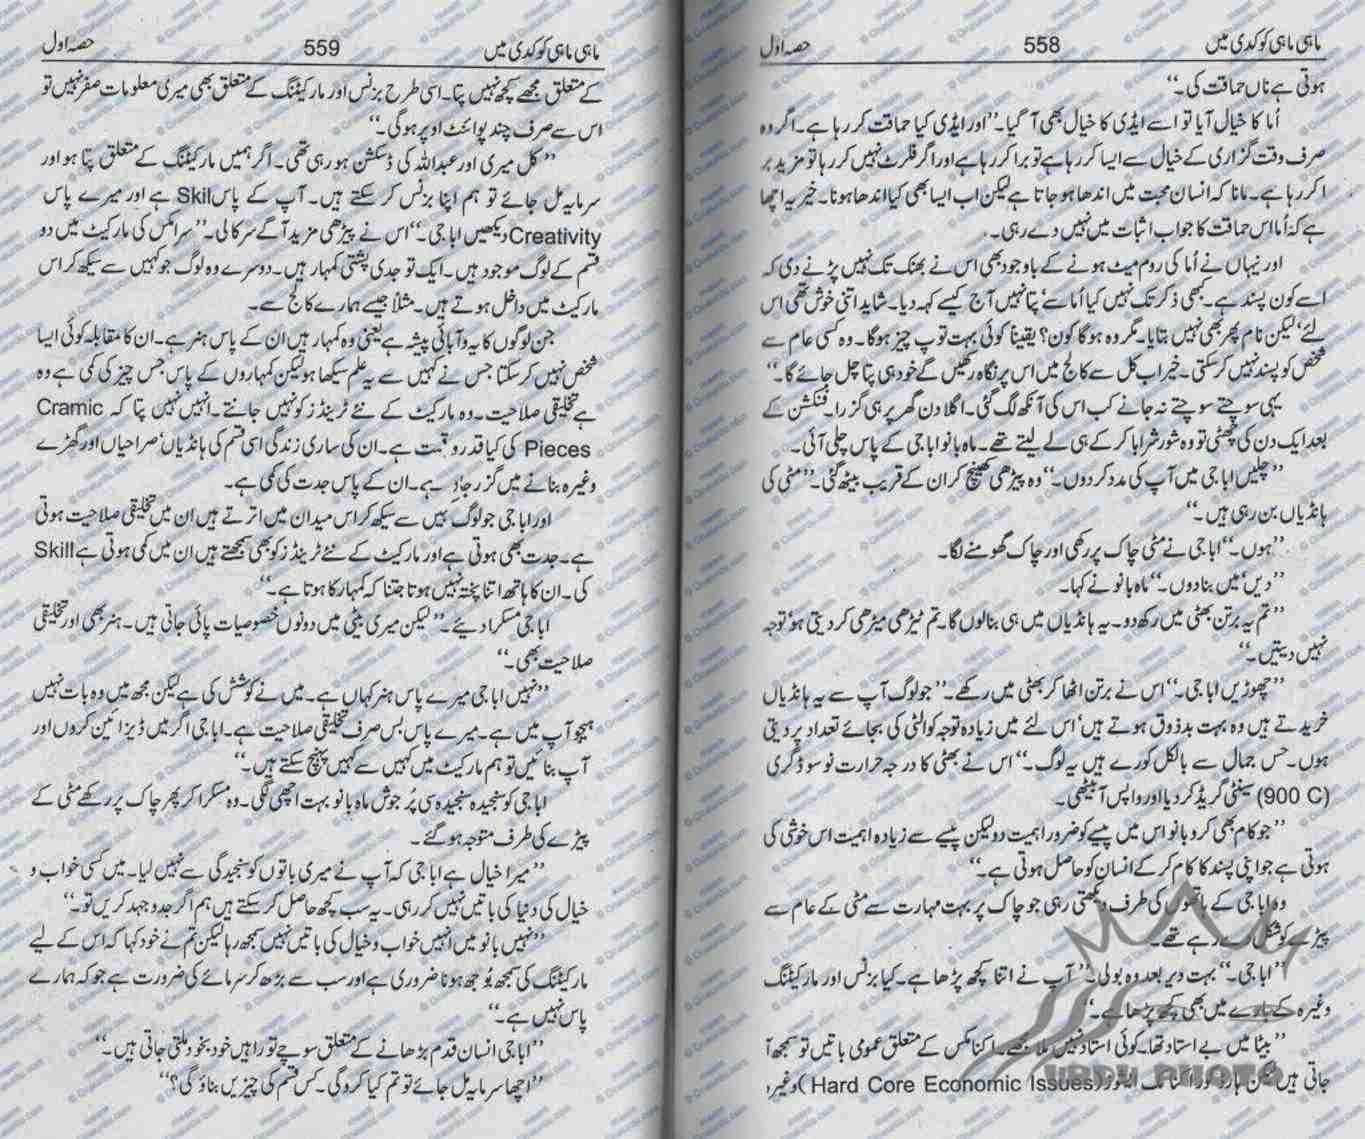 ماہی ماہی کوکدی میں 558 حصہ اول
ہوتی ہے ناں حماقت کی۔‘‘
اُما کا خیال آیا تو اسے ایڈی کا خیال بھی آ گیا۔ ’’اور ایڈی کیا حماقت کر رہا ہے۔ اگر وہ
صرف وقت گزاری کے خیال سے ایسا کر رہا ہے تو برا کر رہا ہے اور اگر فلرٹ نہیں کر رہا تو مزید بر
ا کر رہا ہے۔ مانا کہ انسان محبت میں اندھا ہو جاتا ہے لیکن اب ایسا بھی کیا اندھا ہونا۔ خیر یہ اچھا
ہے کہ اُما اس حماقت کا جواب اثبات میں نہیں دے رہی۔
اور نیہاں نے اُما کی روم میٹ ہونے کے باوجود بھی اس نے بھنک تک نہیں پڑنے دی کہ
اسے کون پسند ہے۔ کبھی ذکر تک نہیں کیا اُما سے‘ پتا نہیں آج کیسے کہہ دیا۔ شاید اتنی خوش تھی اس
لئے‘ لیکن نام پھر بھی نہیں بتایا۔ مگر وہ ہوگا کون؟ یقیناً کوئی بہت توپ چیز ہوگا۔ وہ کسی عام سے
شخص کو پسند نہیں کر سکتی۔ خیر اب کل سے کالج میں اس پر نگاہ رکھیں گے خود ہی پتا چل جائے گا۔‘‘
یہی سوچتے سوچتے نہ جانے کب اس کی آنکھ لگ گئی۔ اگلا دن گھر پر ہی گزرا۔ فنکشن کے
بعد ایک دن کی چھٹی تو وہ شور شرابا کر کے ہی لے لیتے تھے۔ ماہ بانو ابا جی کے پاس چلی آئی۔
’’چلیں ابا جی میں آپ کی مدد کر دوں۔‘‘ وہ پیڑھی کھینچ کر ان کے قریب بیٹھ گئی۔ ’’مٹی کی
ہانڈیاں بن رہی ہیں۔‘‘
’’ہوں۔‘‘ ابا جی نے مٹی چاک پر رکھی اور چاک گھومنے لگا۔
’’دیں‘ میں بنا دوں۔‘‘ ماہ بانو نے کہا۔
’’تم یہ برتن بھٹی میں رکھ دو۔ یہ ہانڈیاں میں ہی بنا لوں گا۔ تم ٹیڑھی میڑھی کر دیتی ہو‘ توجہ
نہیں دیتیں۔‘‘
’’چھوڑیں ابا جی۔‘‘ اس نے برتن اٹھا کر بھٹی میں رکھے۔ ’’جو لوگ آپ سے یہ ہانڈیاں
خریدتے ہیں وہ بہت بدذوق ہوتے ہیں‘ اس لئے میں زیادہ توجہ کوالٹی کی بجائے تعداد پر دیتی
ہوں۔ حس جمال سے بالکل کورے ہیں یہ لوگ۔‘‘ اس نے بھٹی کا درجہ حرارت نو سو ڈگری
(900 C) سینٹی گریڈ کر دیا اور واپس آ بیٹھی۔
’’جو کام بھی کرو بانو اس میں پیسے کو ضرور اہمیت دو لیکن پیسے سے زیادہ اہمیت اس خوشی کی
ہوتی ہے جو اپنی پسند کا کام کر کے انسان کو حاصل ہوتی ہے۔‘‘
وہ ابا جی کے ہاتھوں کی طرف دیکھتی رہی جو چاک پر بہت مہارت سے مٹی کے عام سے
پیڑے کو شکل دے رہے تھے۔
’’ابا جی۔‘‘ بہت دیر بعد وہ بولی۔ ’’آپ نے اتنا کچھ پڑھا ہے۔ کیا بزنس اور مارکیٹنگ
وغیرہ کے بارے میں بھی کچھ پڑھا ہے۔‘‘
’’بیٹا میں بے استاد تھا۔ کوئی استاد نہیں ملا مجھے۔ اکنامکس کے متعلق عمومی باتیں تو سمجھ آ
جاتی ہیں لیکن ہارڈ کور اکنامک ایشوز (Hard Core Economic Issues) وغیرہ
ماہی ماہی کوکدی میں 559 حصہ اول
کے متعلق مجھے کچھ نہیں پتا۔ اسی طرح بزنس اور مارکیٹنگ کے متعلق بھی میری معلومات صفر نہیں تو
اس سے صرف چند پوائنٹ اوپر ہوگی۔‘‘
’’کل میری اور عبداللہ کی ڈسکشن ہو رہی تھی۔ اگر ہمیں مارکیٹنگ کے متعلق پتا ہو اور
سرمایہ مل جائے تو ہم اپنا بزنس کر سکتے ہیں۔ آپ کے پاس Skil ہے اور میرے پاس
Creativity دیکھیں ابا جی۔‘‘ اس نے پیڑھی مزید آگے سرکا لی۔ ’’سرامکس کی مارکیٹ میں دو
قسم کے لوگ موجود ہیں۔ ایک تو جدی پشتی کمہار ہیں۔ دوسرے وہ لوگ جو کہیں سے سیکھ کر اس
مارکیٹ میں داخل ہوتے ہیں۔ مثلاً جیسے ہمارے کالج سے۔
جن لوگوں کا یہ وآبائی پیشہ ہے یعنی وہ کمہار ہیں ان کے پاس ہنر ہے۔ ان کا مقابلہ کوئی ایسا
شخص نہیں کر سکتا جس نے کہیں سے یہ علم سیکھا ہو لیکن کمہاروں کے پاس جس چیز کی کمی ہے وہ
ہے تخلیقی صلاحیت۔ وہ مارکیٹ کے نئے ٹرینڈز کو نہیں جانتے۔ انہیں نہیں پتا کہ Cramic
Pieces کی کیا قدر و قیمت ہے۔ ان کی ساری زندگی اسی قسم کی ہانڈیاں‘ صراحیاں اور گھڑے
وغیرہ بنانے میں گزر جاتی ہے۔ ان کے پاس جدت کی کمی ہے۔
اور ابا جی جو لوگ کہیں سے سیکھ کر اس میدان میں اترتے ہیں ان میں تخلیقی صلاحیت ہوتی
ہے۔ جدت بھی ہوتی ہے اور مارکیٹ کے نئے ٹرینڈز کو بھی سمجھتے ہیں ان میں کمی ہوتی ہے Skill
کی۔ ان کا ہاتھ اتنا پختہ نہیں ہوتا جتنا کہ کمہار کا ہوتا ہے۔‘‘
ابا جی مسکرا دیئے۔ ’’لیکن میری بیٹی میں دونوں خصوصیات پائی جاتی ہیں۔ ہنر بھی اور تخلیقی
صلاحیت بھی۔‘‘
’’نہیں ابا جی میرے پاس ہنر کہاں ہے۔ میں نے کوشش کی ہے لیکن مجھ میں وہ بات نہیں
ہے جو آپ میں ہے۔ میرے پاس بس صرف تخلیقی صلاحیت ہے۔ ابا جی اگر میں ڈیزائین کروں اور
آپ بنائیں تو ہم مارکیٹ میں کہیں سے کہیں پہنچ سکتے ہیں۔‘‘
ابا جی کو سنجیدہ سنجیدہ سی پُر جوش ماہ بانو بہت اچھی لگی۔ وہ مسکرا کر پھر چاک پر رکھے مٹی کے
پیڑے کی طرف متوجہ ہو گئے۔
’’میرا خیال ہے ابا جی کہ آپ نے میری باتوں کو سنجیدگی سے نہیں لیا۔ میں کسی خواب و
خیال کی دنیا کی باتیں نہیں کر رہی۔ یہ سب کچھ حاصل کر سکتے ہیں ہم اگر جدوجہد کریں تو۔‘‘
’’نہیں بانو میں انہیں خواب و خیال کی باتیں نہیں سمجھ رہا لیکن تم نے خود کہا کہ اس کے لیے
مارکیٹنگ کی سمجھ بوجھ ہونا ضروری ہے اور سب سے بڑھ کر سرمائے کی ضرورت ہے جو کہ ہمارے
پاس نہیں ہے۔‘‘
’’ابا جی انسان قدم بڑھانے کے متعلق سوچے تو راہیں خود بخود ملتی جاتی ہیں۔‘‘
’’اچھا سرمایہ مل جائے تو تم کیا کرو گی۔ کس قسم کی چیزیں بناؤ گی؟‘‘
URDU PHOTO